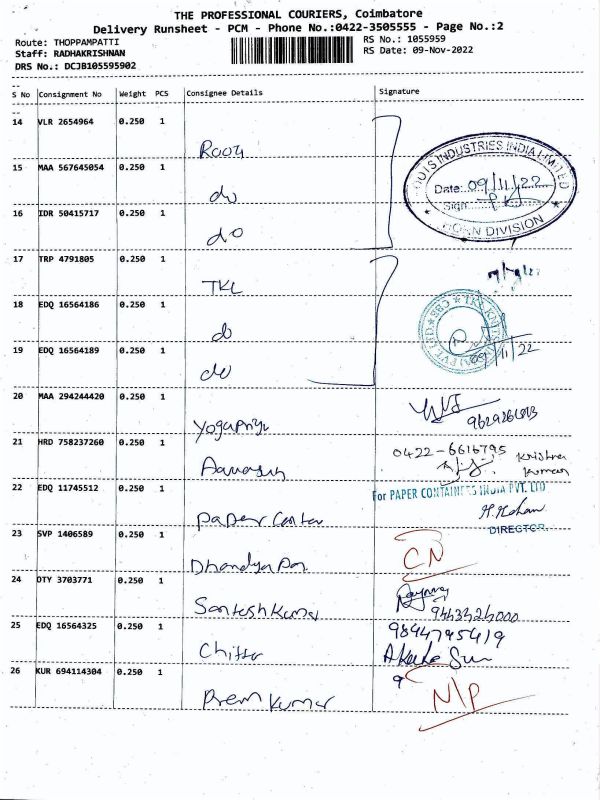 THE PROFESSIONAL COURIERS, Coimbatore
Delivery Runsheet - PCM - Phone No.:0422-3505555 - Page No.:2
Route: THOPPAMPATTI
Staff: RADHAKRISHNAN
DRS No.: DCJB105595902
RS No.: 1055959
RS Date: 09-Nov-2022
S No Consignment No Weight PCS Consignee Details Signature
14 VLR 2654964 0.250 1
Roots
15 MAA 567645054 0.250 1
do
16 IDR 50415717 0.250 1
do
ROOTS INDUSTRIES INDIA LIMITED
Date: 09/11/22
Sign:
HORN DIVISION
17 TRP 4791805 0.250 1
TKL
18 EDQ 16564186 0.250 1
do
19 EDQ 16564189 0.250 1
do
TKL KNITS
09/11/22
20 MAA 294244420 0.250 1
Yogapriya
21 HRD 758237260 0.250 1
0422-6616795
Krishna
Kumar
22 EDQ 11745512 0.250 1
Paper Conter
For PAPER CONTAINERS INDIA PVT. LTD
DIRECTOR
23 SVP 1406589 0.250 1
CN
24 OTY 3703771 0.250 1
Santesh Kumar
25 EDQ 16564325 0.250 1
9844795419
26 KUR 694114304 0.250 1
Prem Kumar
N/P